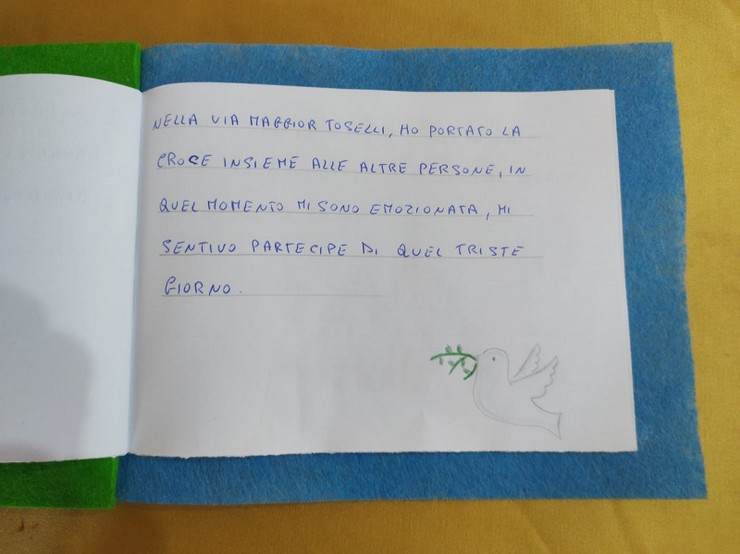 NELLA VIA MAGGIOR TOSELLI, HO PORTATO LA
CROCE INSIEME ALLE ALTRE PERSONE, IN
QUEL MOMENTO MI SONO EMOZIONATA, MI
SENTIVO PARTECIPE DI QUEL TRISTE
GIORNO.